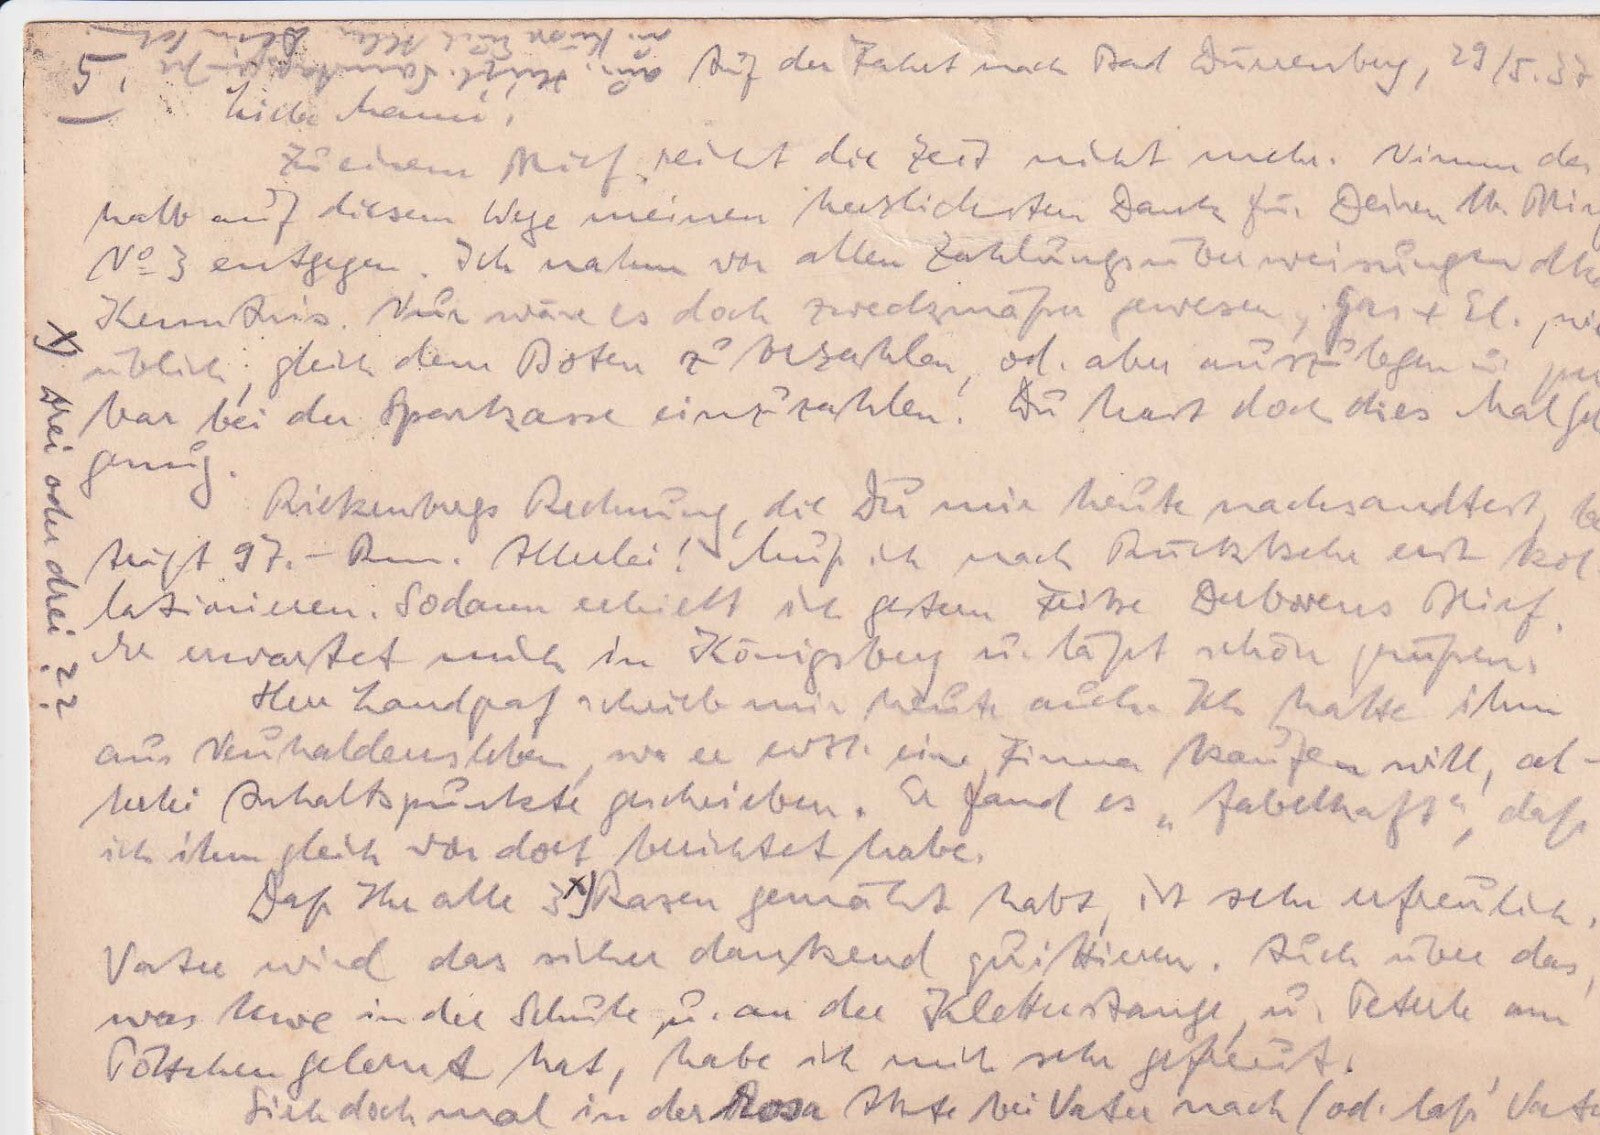 5.)
Auf der Fahrt nach Bad Dürrenberg, 29/5.37
Liebe Mami!
Zu einem Brief reicht die Zeit nicht mehr. Nimm des
halb auf diesem Wege meinen herzlichsten Dank für Deinen lb. Brief
No 3 entgegen. Ich nahm von allen Zahlungsüberweisungen
Kenntnis. Nur wäre es doch zweckmäßig gewesen, Gas + El., wie
üblich, gleich dem Boten zu bezahlen, od. aber auszulegen u.
bar bei der Sparkasse einzuzahlen. Du hast doch dies Mal Geld
genug.
Riekenbergs Rechnung, die Du mir heute nachsandtest, be
trägt 97.- Rm. Allerlei! Muß ich nach Rückkehr erst kol-
lationieren. Sodann erhielt ich gestern Fritze Brief.
Er erwartet mich in Königsberg u. läßt schön grüßen.
Herr Landgraf schrieb mir heute auch. Ich hatte ihm
aus Neuhaldensleben, wo er evtl. eine Firma kaufen will, al-
lerlei Anhaltspunkte geschrieben. Er fand es "fabelhaft", daß
ich ihm gleich von dort berichtet habe.
Daß Ihr alle 3 x) Rasen gemäht habt, ist sehr erfreulich.
Vater wird das sicher dankend quittieren. Auch über das,
was Uwe in der Schule u. an der Kletterstange, u. Peterle am
Töttchen gelernt hat, habe ich mich sehr gefreut.
Sieh doch mal in der Rosa Akte bei Vater nach (od. laß Vater
x) drei oder drei??